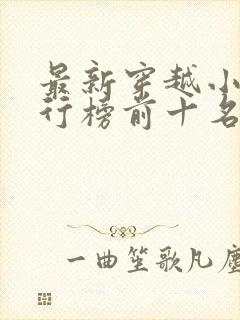 最新穿越小
行榜前十名
一曲笙歌凡尘